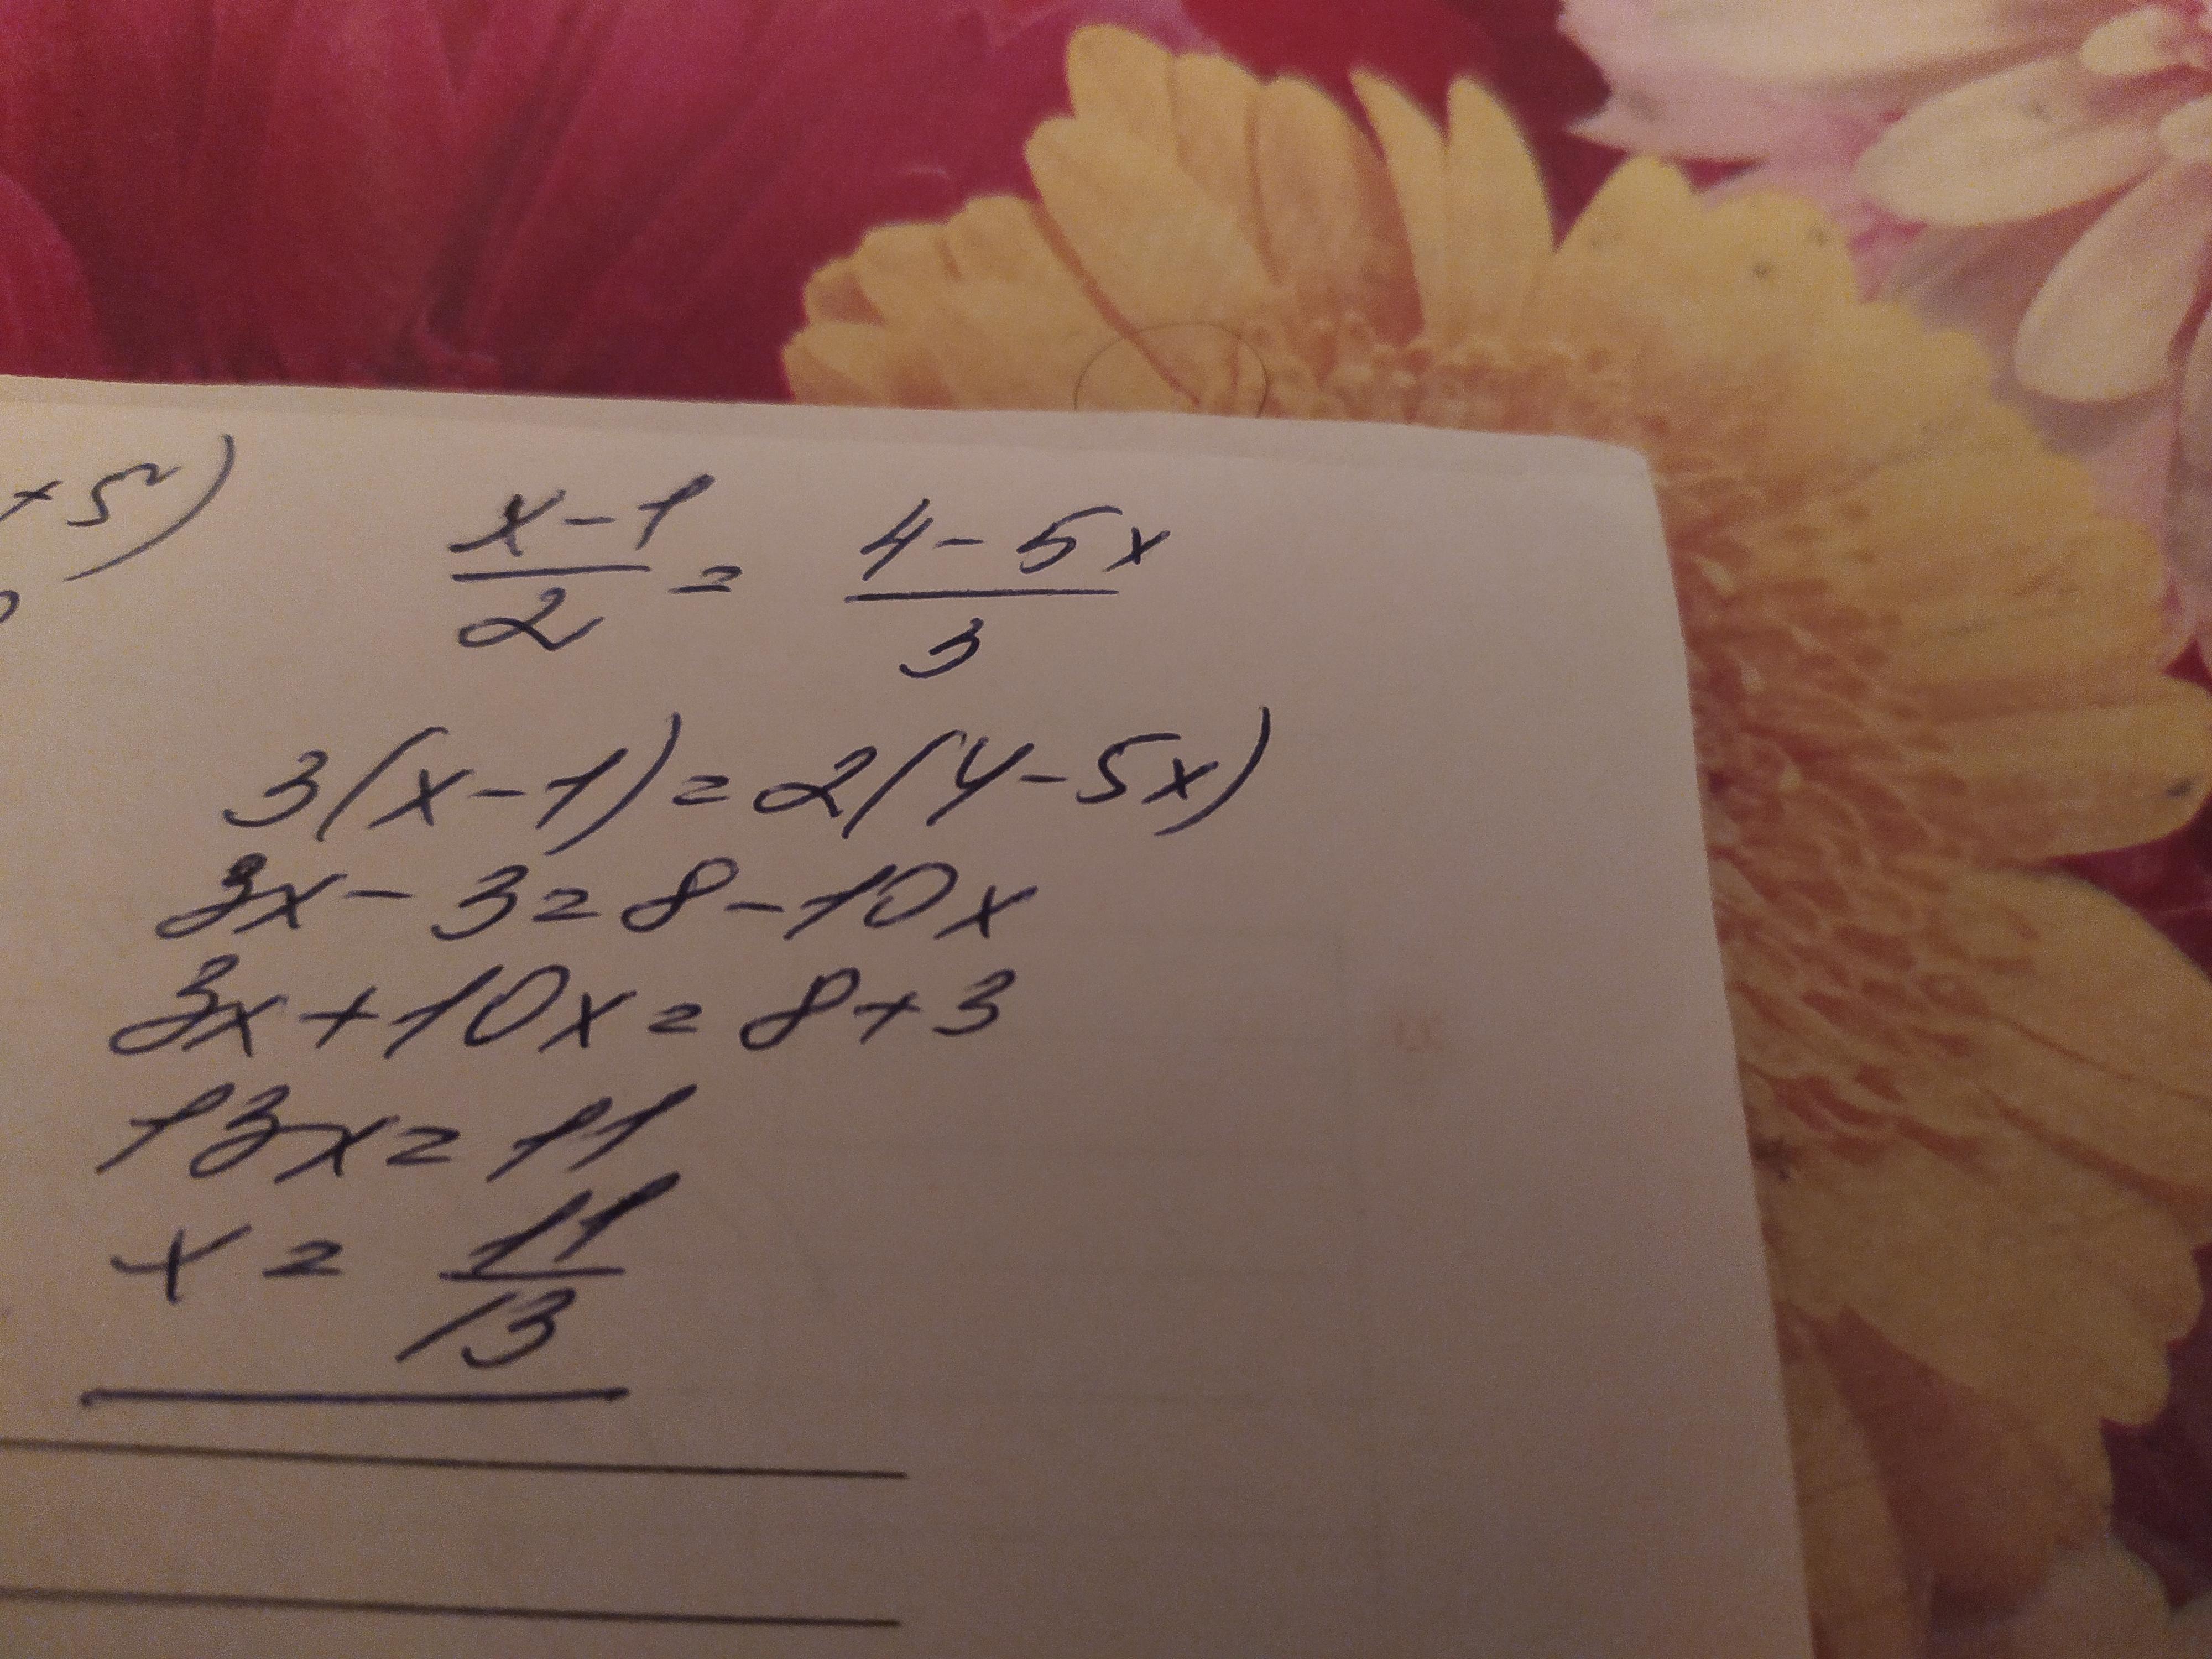 +5)
x-1/2 = 4-5x/3
3(x-1)=2(4-5x)
3x-3=8-10x
3x+10x=8+3
13x=11
x = 11/13